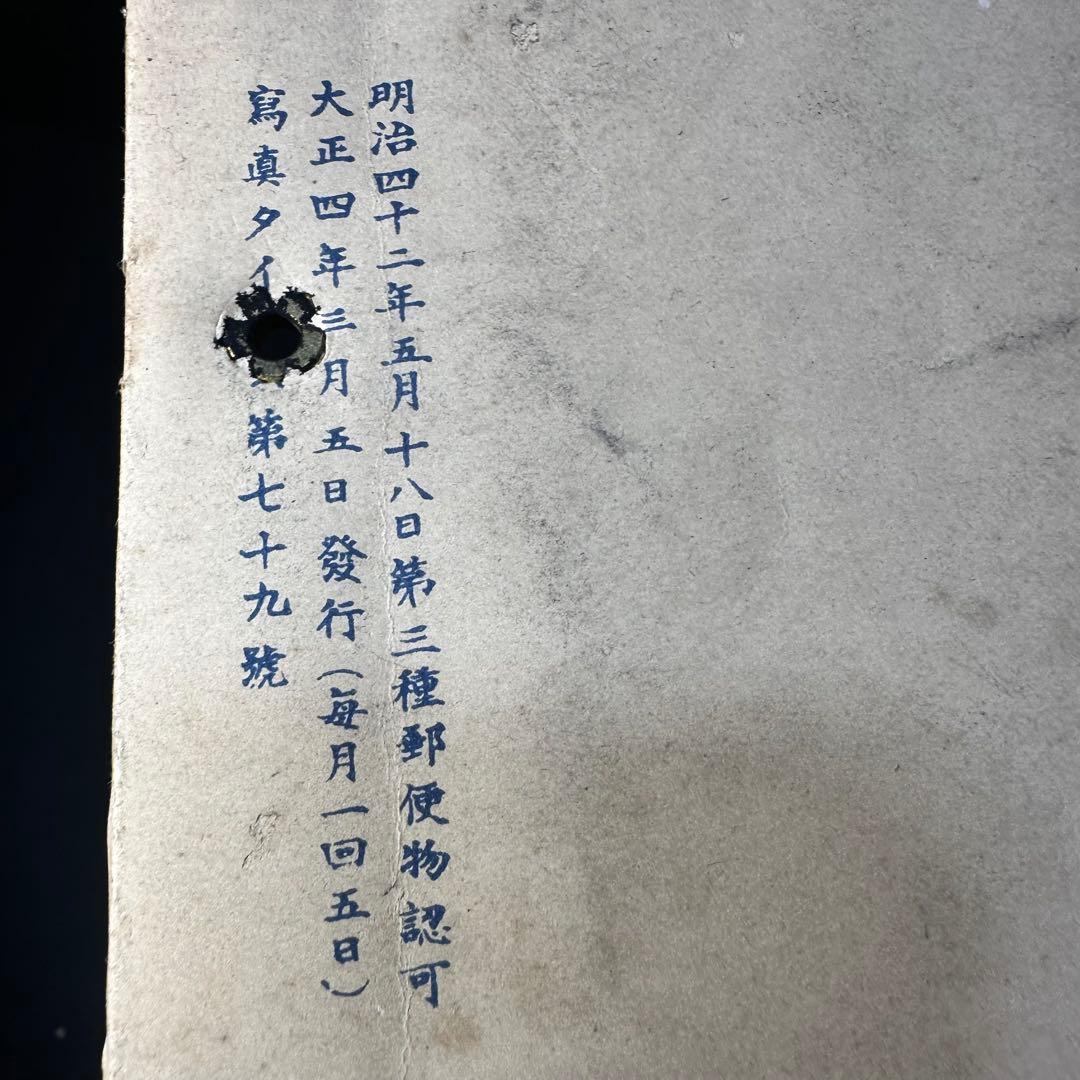 明治四十二年五月十八日第三種郵便物認可
大正四年三月五日發行(每月一回五日)
寫眞タイ 第七十九號